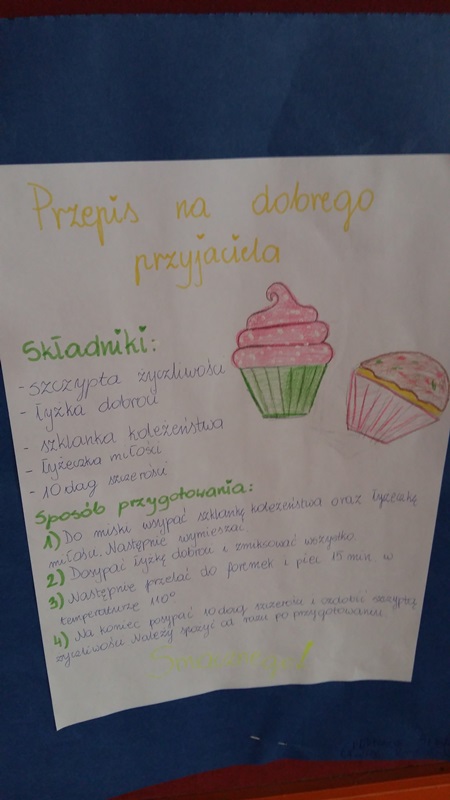 Przepis na dobrego
przyjaciela
Składniki:
- szczypta życzliwości
- łyżka dobroci
- szklanka koleżeństwa
- łyżeczka miłości
- 10 dag szczerości
Sposób przygotowania:
1) Do miski wsypać szklankę koleżeństwa oraz łyżeczkę
miłości. Następnie wymieszać.
2) Dosypać łyżkę dobroci i zmiksować wszystko.
3) Następnie przelać do foremek i piec 15 min. w
temperaturze 110°
4) Na koniec posypać 10 dag szczerości i ozdobić szczyptą
życzliwości. Należy spożyć od razu po przygotowaniu.
Smacznego!